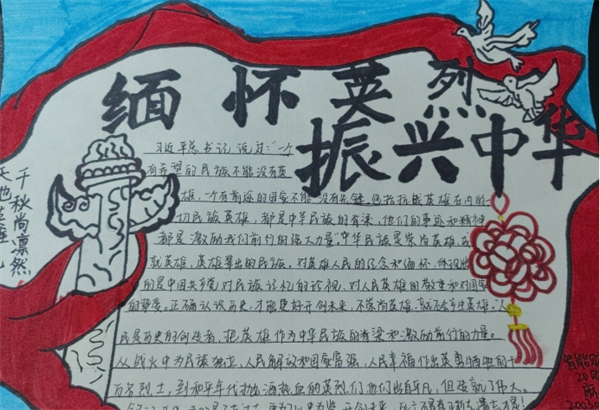 缅怀英烈
振兴中华
千秋尚凛然
天地英雄气
习近平总书记说过:“一个
有希望的民族不能没有英
雄,一个有前途的国家不能没有先锋,包括抗战英雄在内的一
切民族英雄,都是中华民族的脊梁,他们的事迹和精神
都是激励我们前行的强大力量”中华民族是崇尚英雄,成
就英雄,英雄辈出的民族。对英雄人民的纪念和缅怀,体现出
的是中国共产党对民族记忆的珍视,对人民英雄的敬重和对国家
的 正确认识历史,才能更好开创未来,不崇尚英雄,就不会产生英雄。“人
民是历史的创造者,把英雄作为中华民族的脊梁和激励前行的力量。
从战火中为民族独立,人民解放和国家富强,人民幸福作出英勇牺牲的千
百万名烈士,到和平年代抛洒热血的英烈们,他们出自平凡,但造就了伟大。